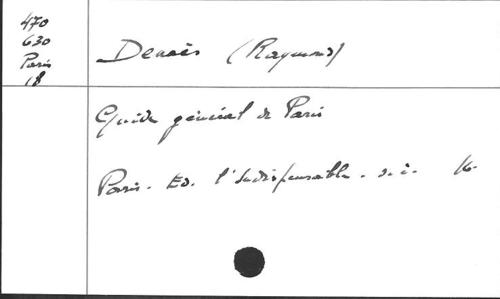 470
630
Paris
18
Denaès (Raymond)
Guide général de Paris
Paris. Ed. l'Indispensable. s. d. 16.